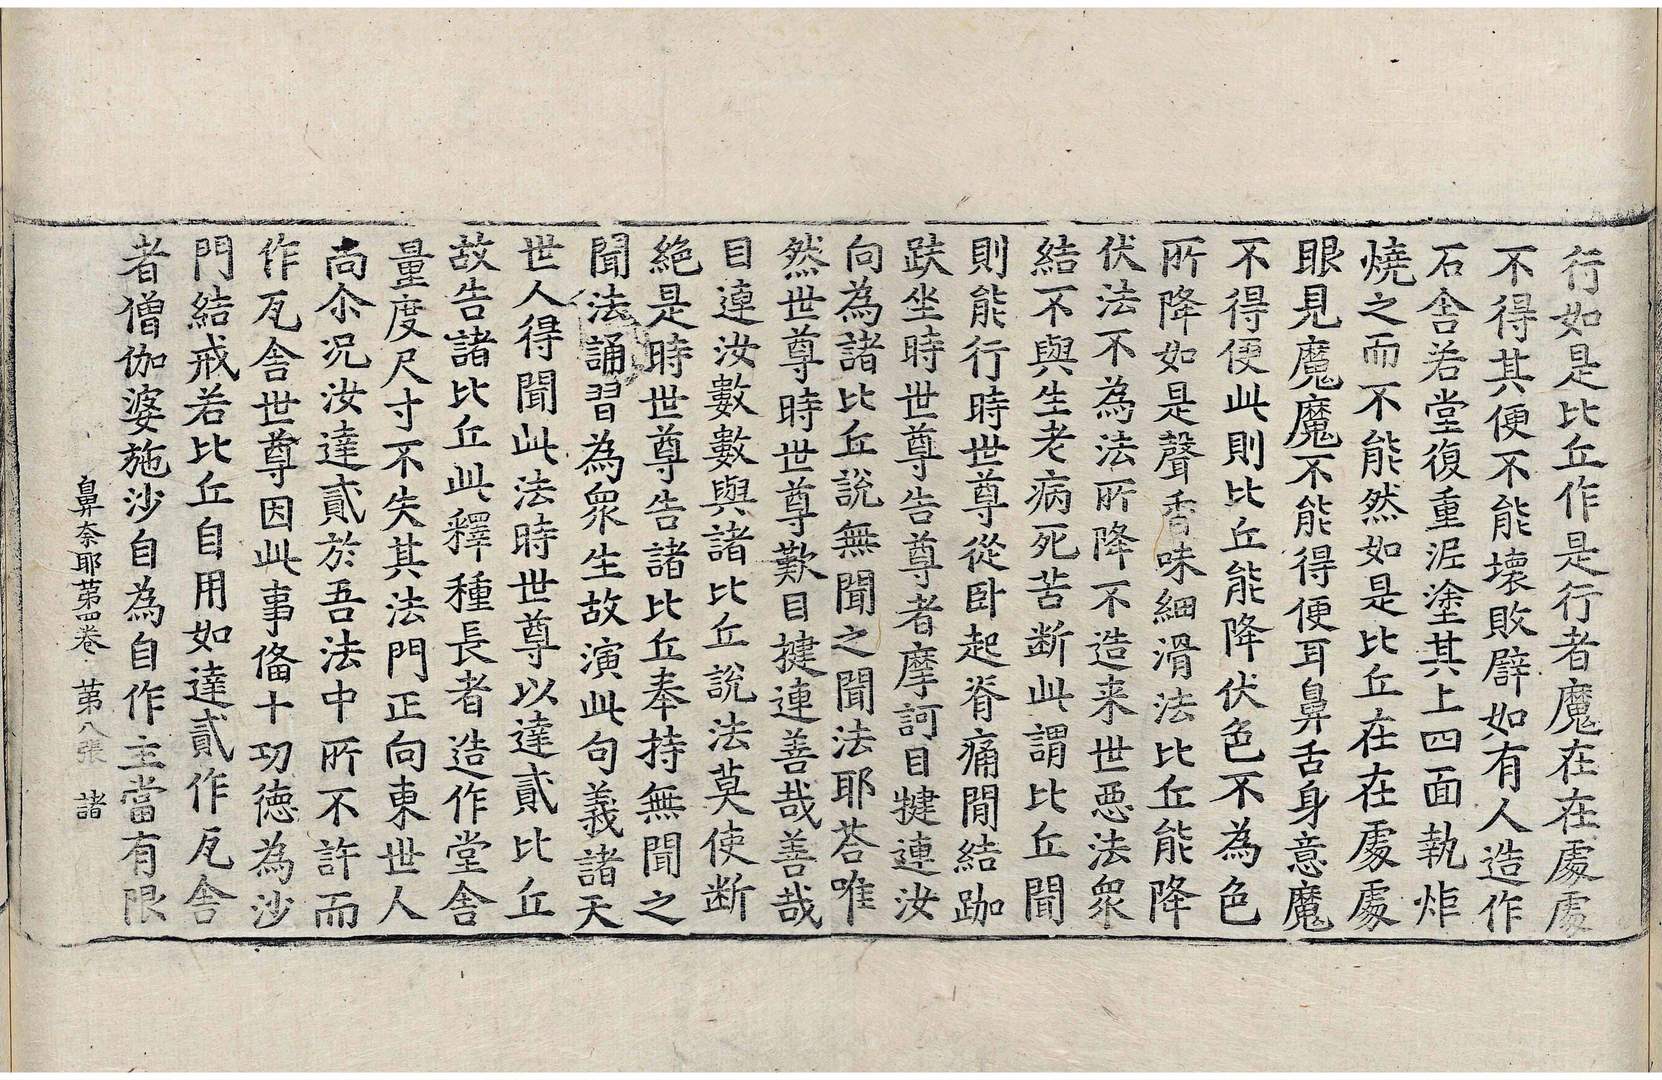 行如是比丘作是行者魔在在處處
不得其便不能壞敗譬如有人造作
石舍若堂復重泥塗其上四面執炬
燒之而不能然如是比丘在在處處
眼見魔魔不能得便耳鼻舌身意魔
不得便此則比丘能降伏色不為色
所降如是聲香味細滑法比丘能降
伏法不為法所降不造来世惡法衆
結不與生老病死苦断此謂比丘聞
則能行時世尊從卧起脊痛閒結跏
趺坐時世尊告尊者摩訶目揵連汝
向為諸比丘說無聞之聞法耶荅唯
然世尊時世尊歎目揵連善哉善哉
目連汝數數與諸比丘說法莫使断
絕是時世尊告諸比丘奉持無聞之
聞法誦習為衆生故演此句義諸天
世人得聞此法時世尊以達貳比丘
故告諸比丘此釋種長者造作堂舍
量度尺寸不失其法門正向東世人
尚尒况汝達貳於吾法中所不許而
作瓦舍世尊因此事俻十功德為沙
門結戒若比丘自用如達貳作瓦舍
者僧伽婆施沙自為自作主當有限
鼻奈耶苐四卷 苐八張 諸